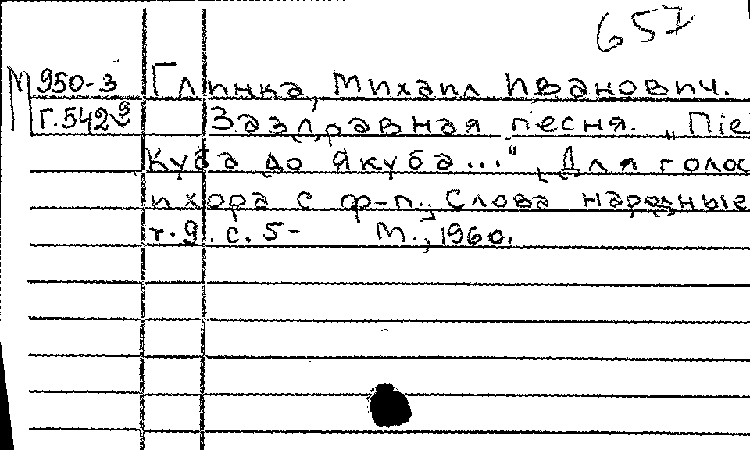 657
М 950-3 Глинка, Михаил Иванович.
Г.542 Заздравная песня. „Піе
Куба до Якуба..." Для голос
и хора с ф-п. Слова народные
т.9. с.5- М., 1960.